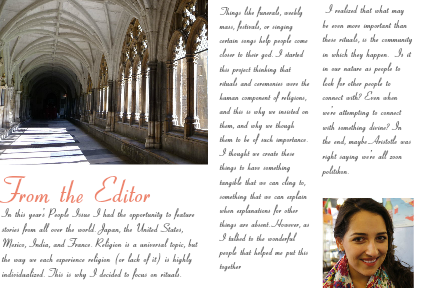 From the Editor
In this year's People Issue I had the opportunity to feature
stories from all over the world. Japan, the United States,
Mexico, India, and France. Religion is a universal topic, but
the way we each experience religion (or lack of it) is highly
individualized. This is why I decided to focus on rituals.
Things like funerals, weekly
mass, festivals, or singing
certain songs help people come
closer to their god. I started
this project thinking that
rituals and ceremonies were the
human component of religions,
and this is why we insisted on
them, and why we though
them to be of such importance.
I thought we create these
things to have something
tangible that we can cling to,
something that we can explain
when explanations for other
things are absent. However, as
I talked to the wonderful
people that helped me put this
together
I realized that what may
be even more important than
these rituals, is the community
in which they happen. Is it
in our nature as people to
look for other people to
connect with? Even when
we're attempting to connect
with something divine? In
the end, maybe Aristotle was
right saying we're all zoon
politikon.